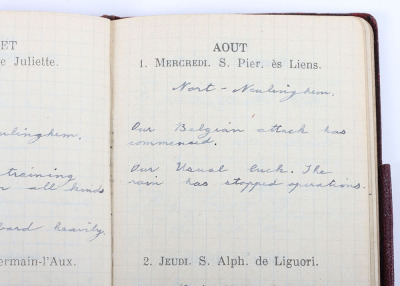 ET
e Juliette.
ulinghem.
training
all kinds
heavily.
ermain-l'Aux.
AOUT
1. MERCREDI. S. Pier. ès Liens.
Nort - Neulinghem.
Our Belgian attack has
commenced.
Our Usual luck. The
rain has stopped operations.
2. JEUDI. S. Alph. de Liguori.